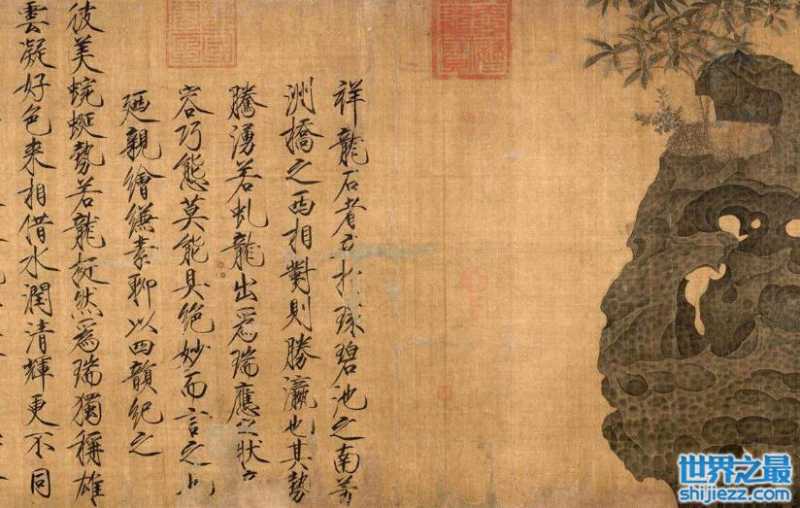 祥龍石者立於環碧池之南芳
洲橋之西相對則勝瀛也其勢
騰湧若虬龍出爲瑞應之狀奇
容巧態莫能具絶妙而言之也
廼親繪縑素聊以四韻紀之
彼美蜿蜒勢若龍挺然爲瑞獨稱雄
雲凝好色来相借水潤清輝更不同
世界之最
shijiezz.com